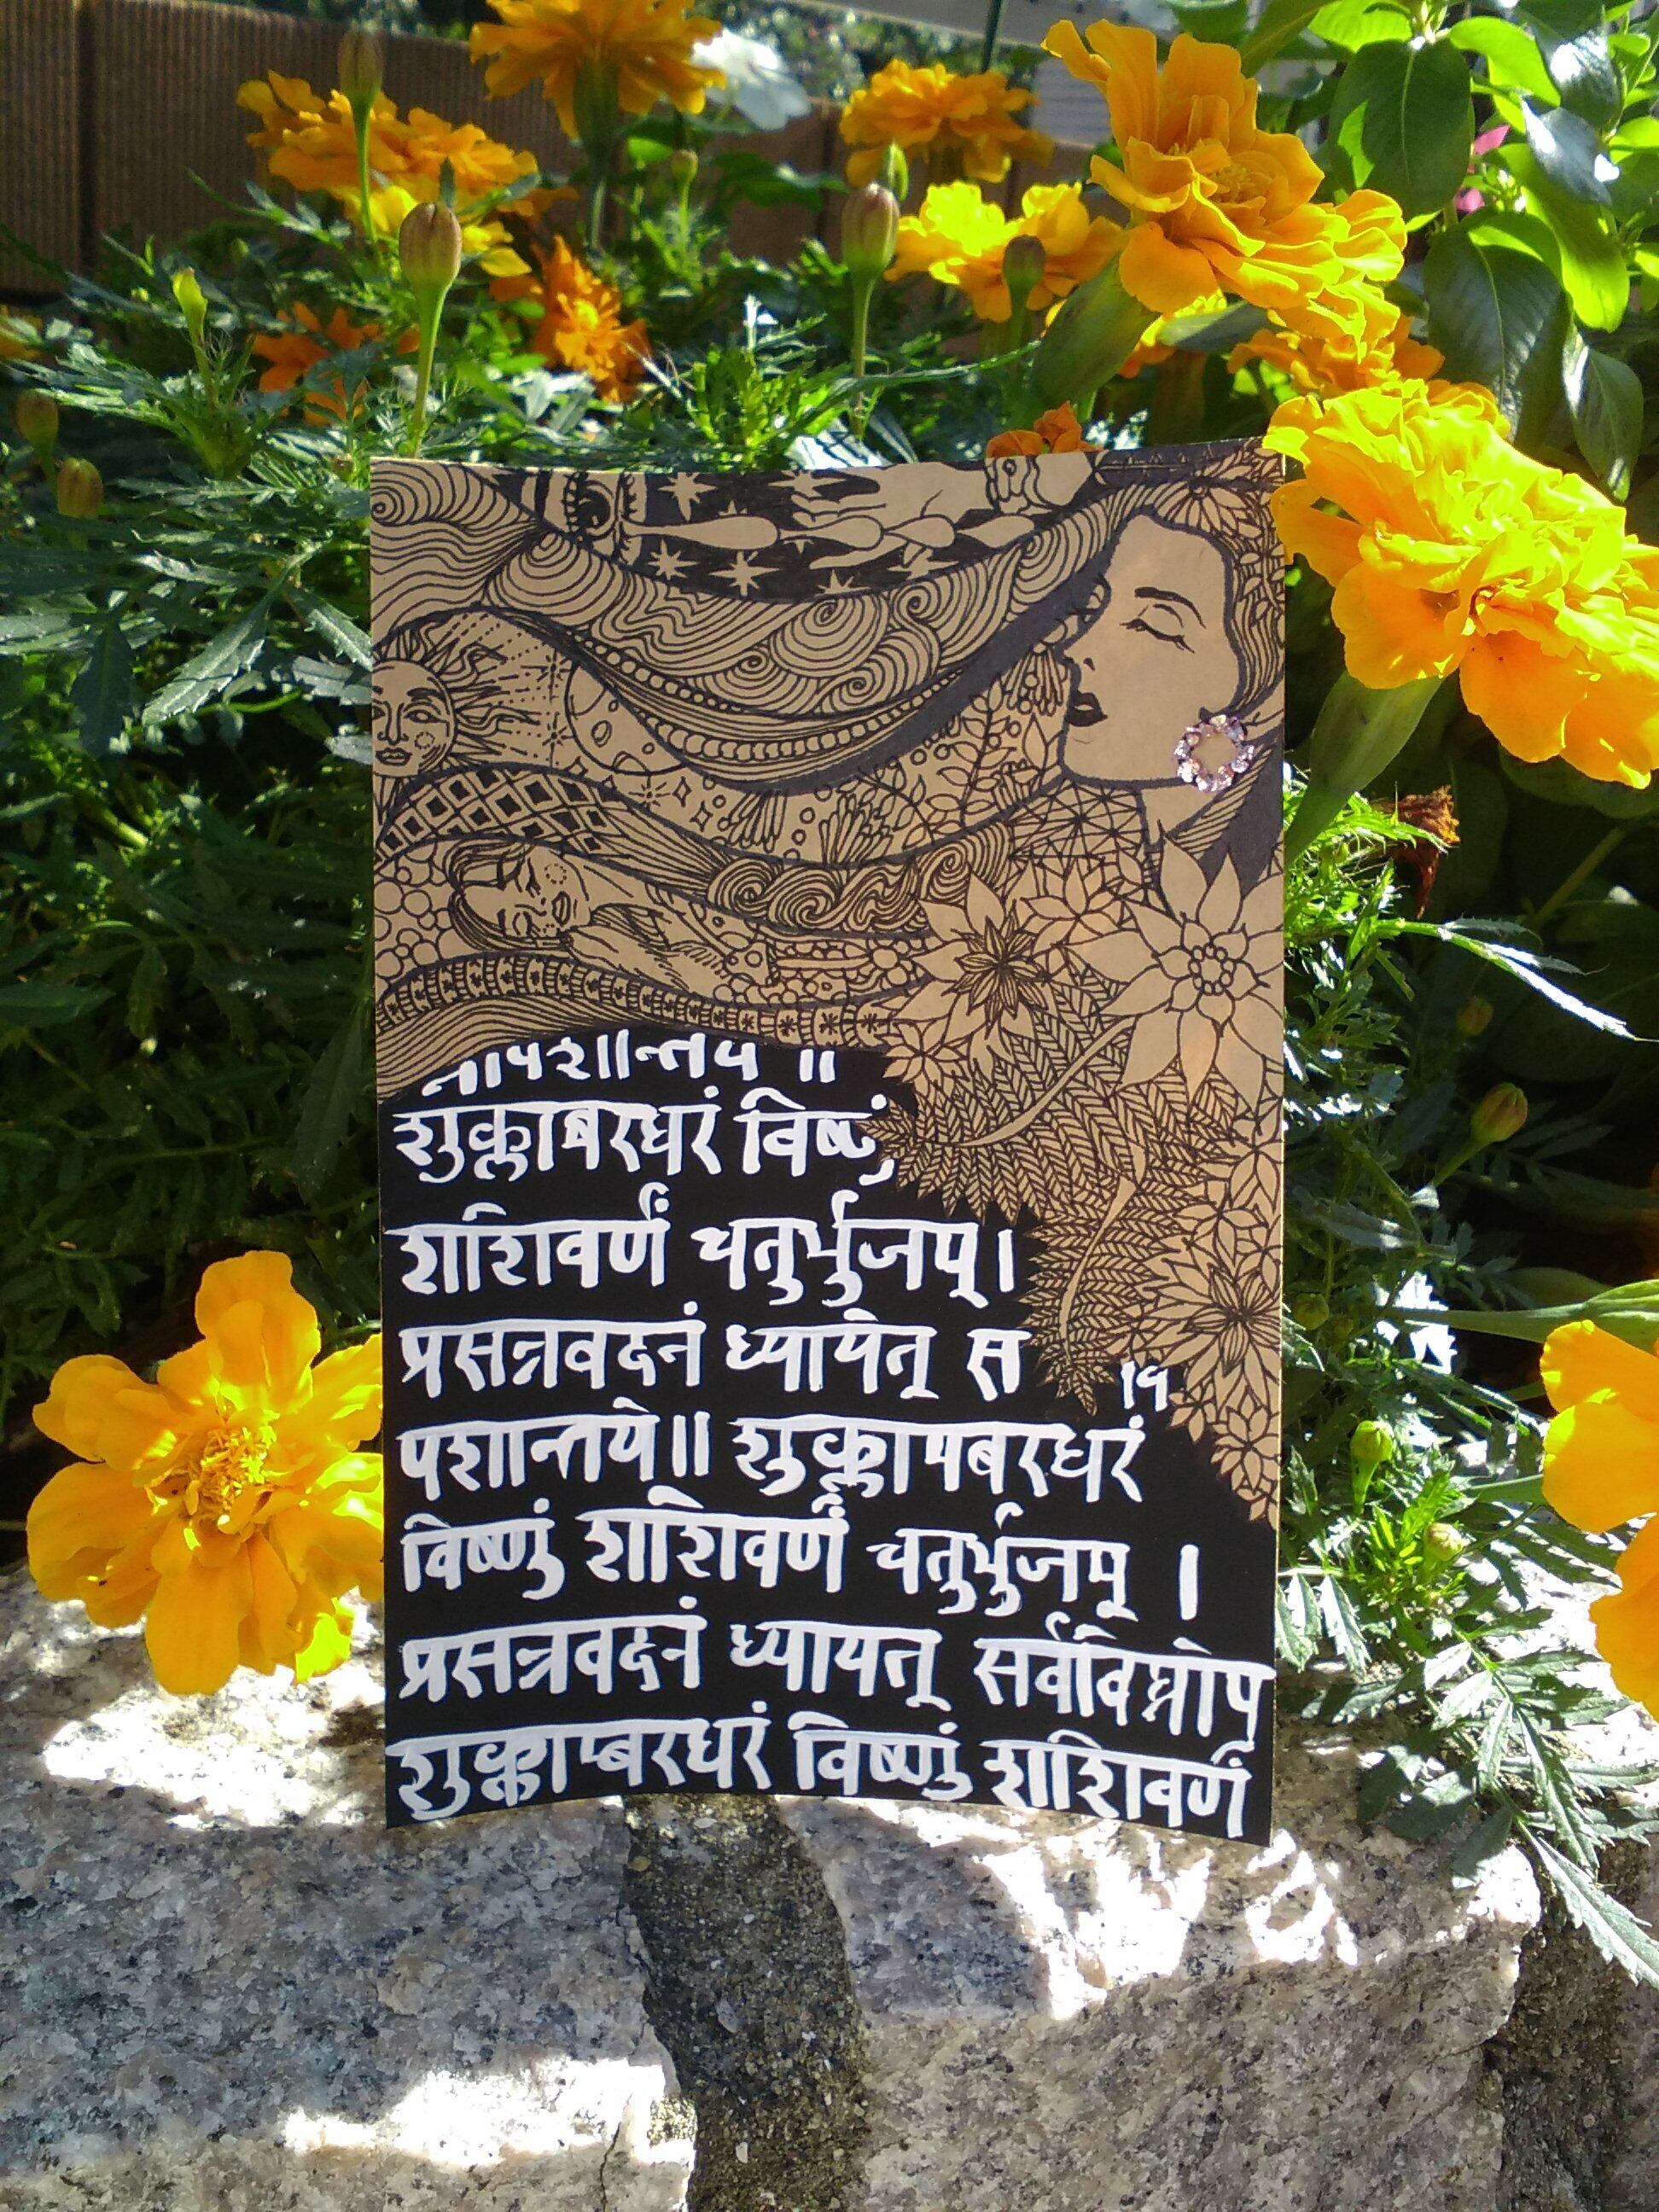 पशान्तये ॥
शुक्लाबरधरं विष्णुं
शाशिवर्णं चतुर्भुजम्।
प्रसन्नवदनं ध्यायेत् स
पशान्तये॥ शुक्लापबरधरं
विष्णुं शाशिवर्णं चतुर्भुजम् ।
प्रसन्नवदनं ध्यायत् सर्वविघ्नोप
शुक्लाम्बरधरं विष्णुं शाशिवर्णं